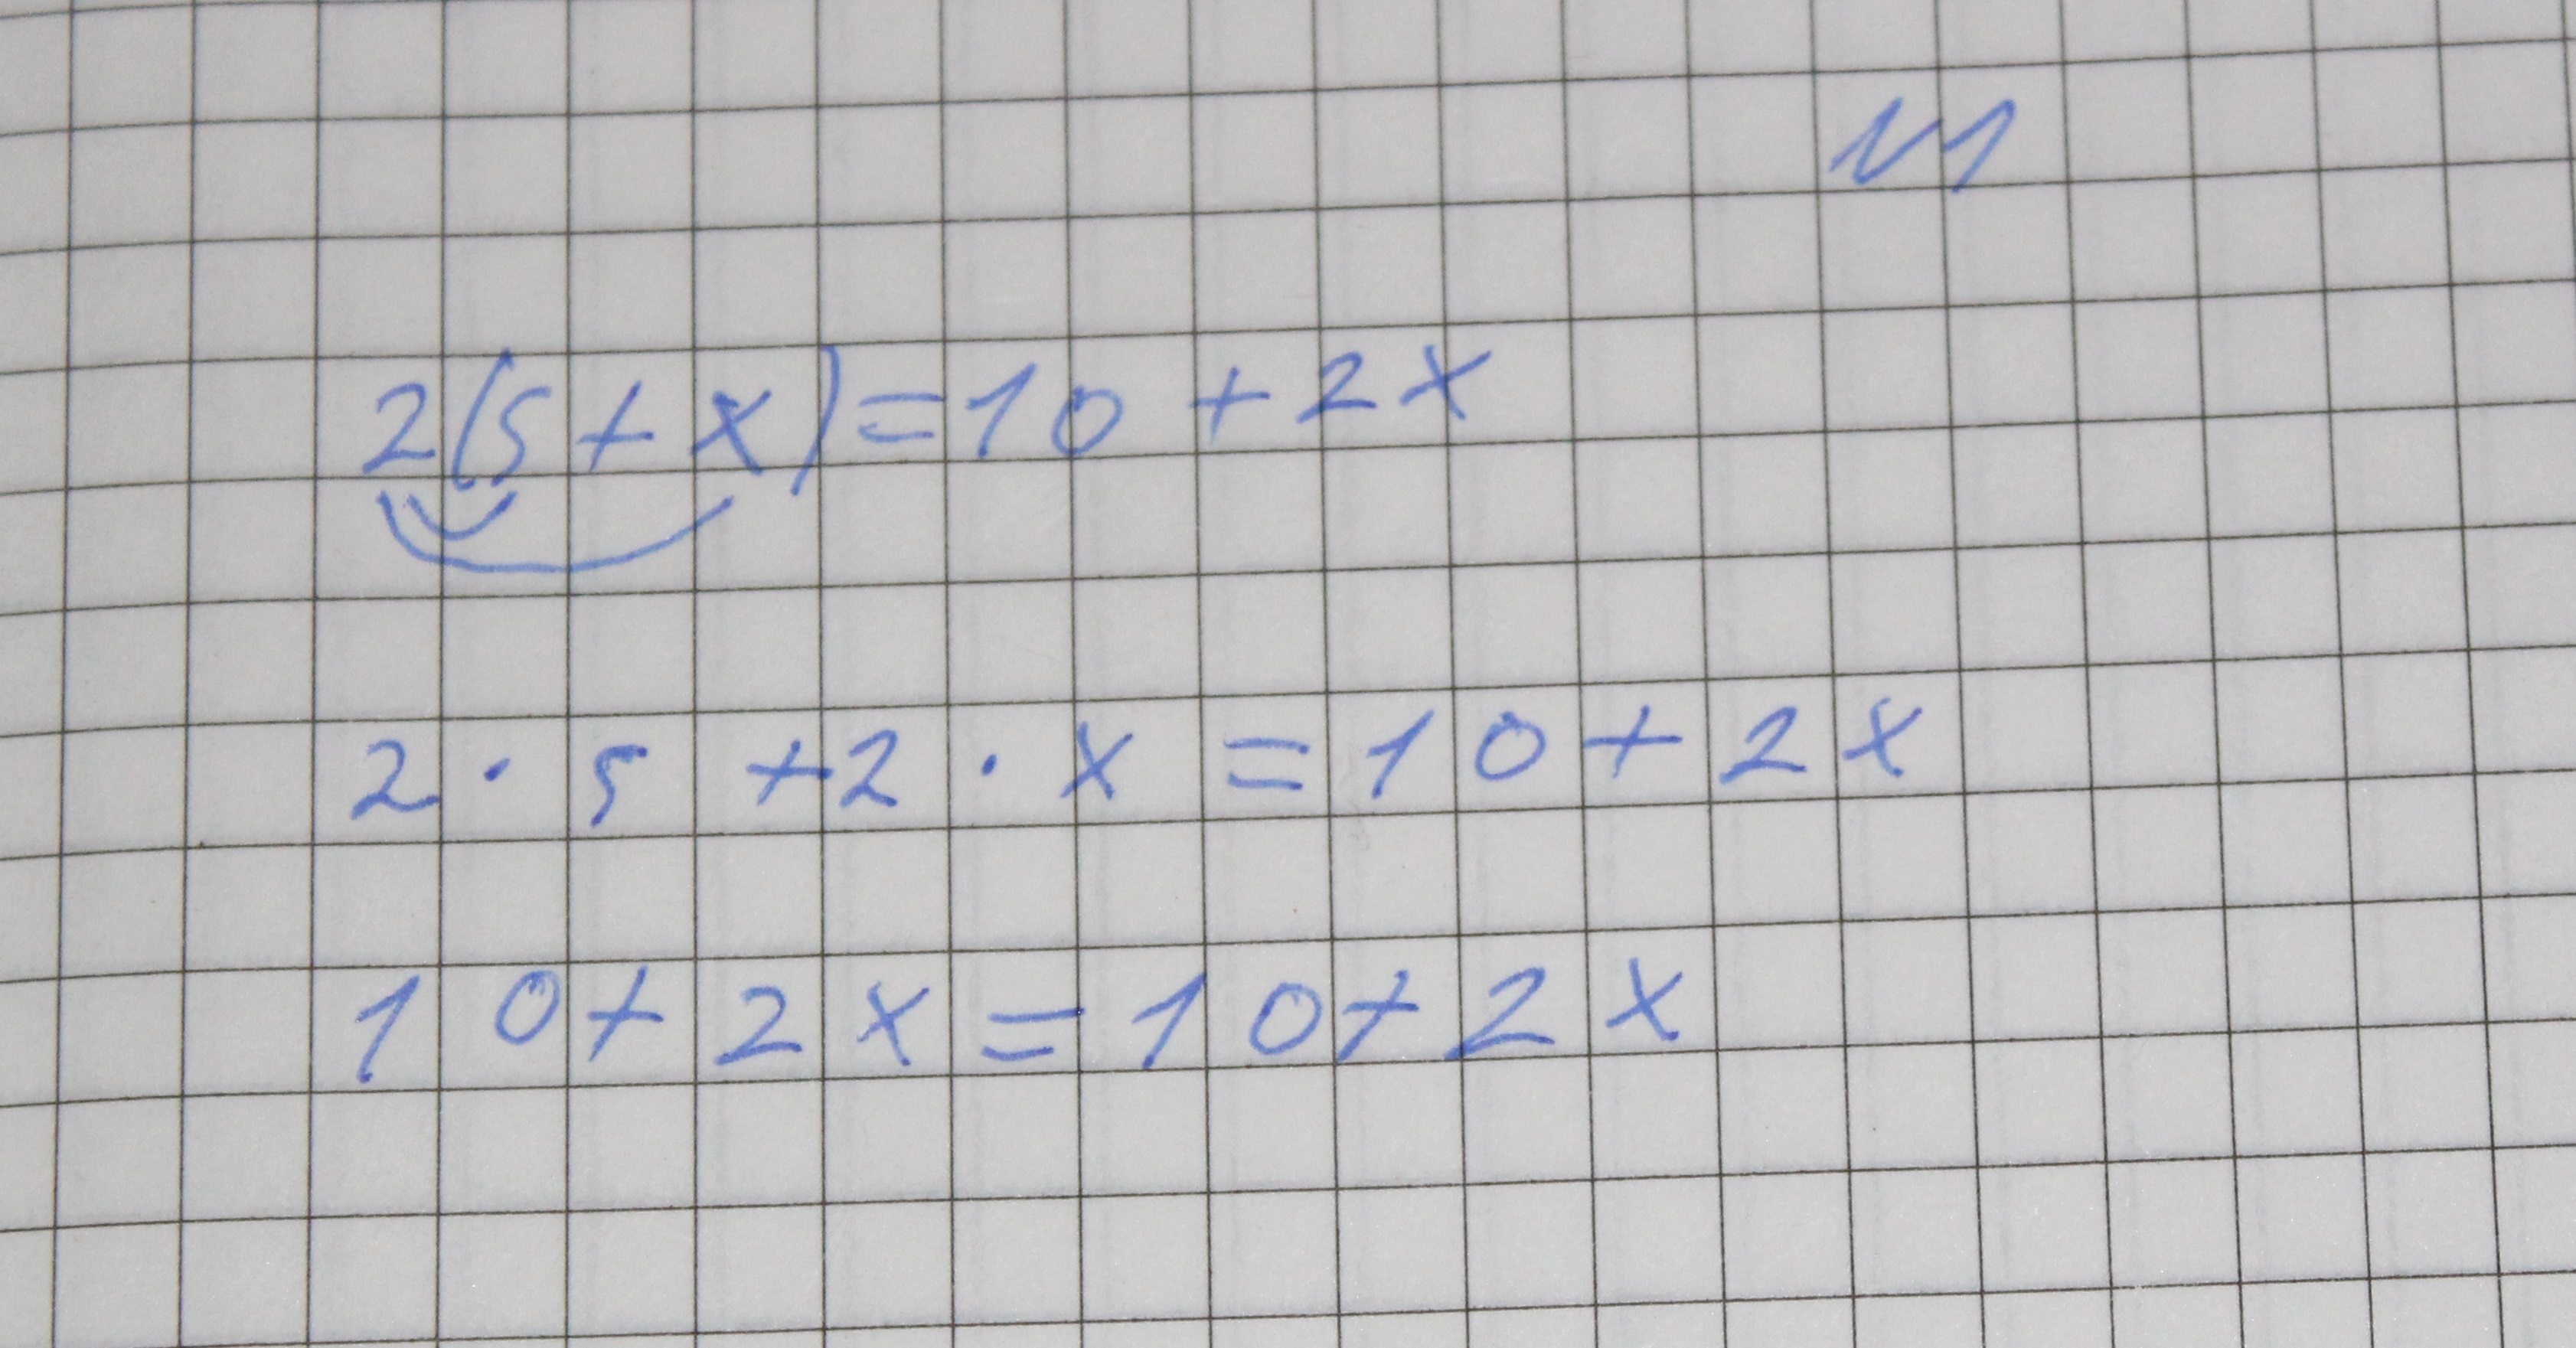 N1
2(5+x)=10+2x
2·5+2·x=10+2x
10+2x=10+2x